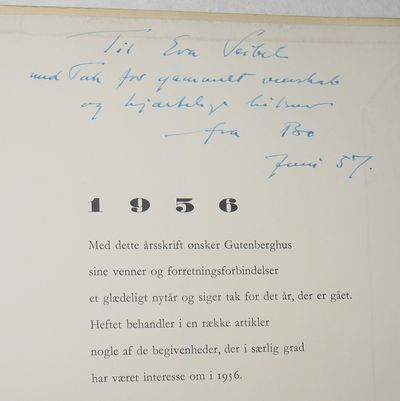 Til Eva Seibel
med Tak for gammelt venskab
og hjertelige hilsner
fra Bo
Juni 57.
1956
Med dette årsskrift ønsker Gutenberghus
sine venner og forretningsforbindelser
et glædeligt nytår og siger tak for det år, der er gået.
Heftet behandler i en række artikler
nogle af de begivenheder, der i særlig grad
har været interesse om i 1956.